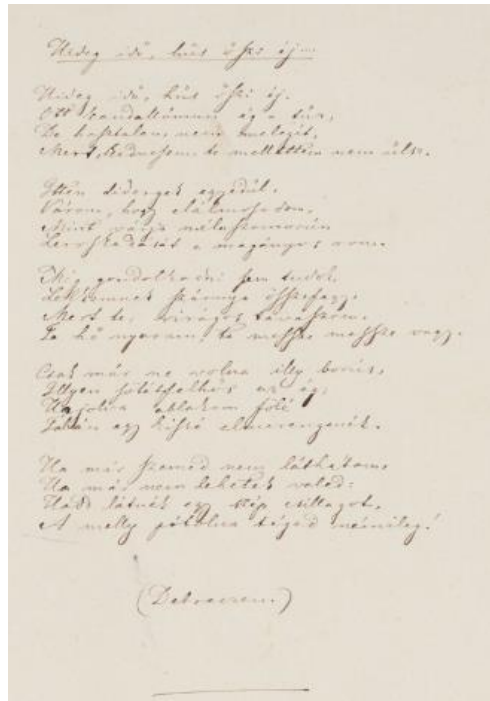 Hideg idő, hüs őszi éj....
Hideg idő, hüs őszi éj.
Ott kandallómon ég a tűz,
De haztalan, nem melegít,
Mert, kedvesem, te mellettem nem ülsz.
Itten didergek egyedül.
Várom, hogy elálmosodom,
Mint várja mélaszomorún
Leroskadását a magányos rom.
Míg gondolkodni sem tudok,
Lelkemnek szárnya összefagy,
Mert te, virágos tavaszom,
Te hő nyaram, te messze, messze vagy.
Csak már ne volna illy borús,
Illyen sötétfelhős az ég,
Ha jőlne ablakom fölé
Talán egy kissé elmerengenék.
Ha már szemed nem láthatom,
Ha már nem lehetek veled:
Hadd látnék egy szép csillagot,
A melly pótolna téged némileg!
(Debreczen.)